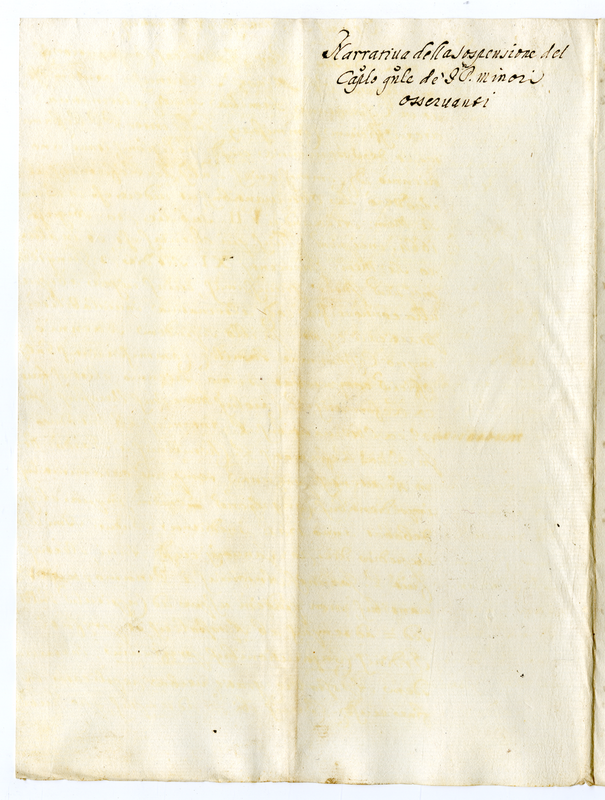 Narratiua della sospensione del
Caplo gnle de PP. minori
osseruanti